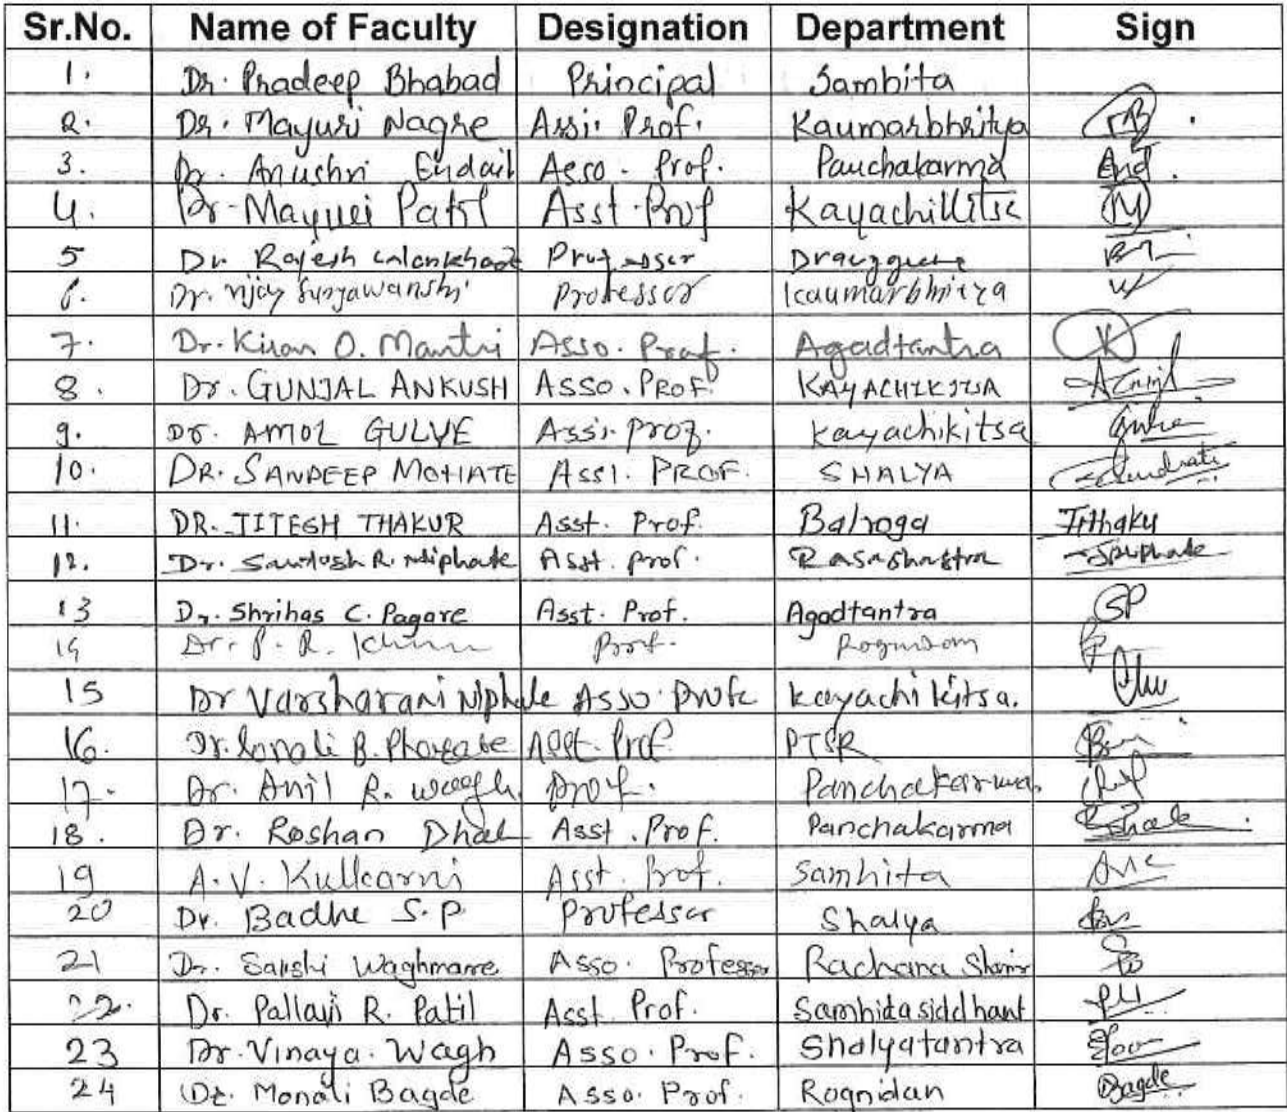 Sr.No. Name of Faculty Designation Department Sign
1. Dr. Pradeep Bhabad Principal Samhita
2. Dr. Mayuri Nagre Assi. Prof. Kaumarbhritya
3. Dr. Anushri Endait Asso. Prof. Panchakarma End.
4. Dr. Mayuri Patil Asst. Prof Kayachikitsa
5 Dr. Rajesh Professor
6. Dr. Vijay Suryawanshi Professor Kaumarbhritya
7. Dr. Kiran O. Mantri Asso. Prof. Agadtantra
8. Dr. GUNJAL ANKUSH ASSO. PROF. KAYACHIKITSA
9. Dr. AMOL GULVE Assi. prof. kayachikitsa
10. DR. SANDEEP MOHATE ASSI. PROF. SHALYA
11. DR. JITESH THAKUR Asst. Prof. Balroga
12. Dr. Santosh R. Niphade Asst. prof. Rasashastra
13 Dr. Shrihas C. Pagare Asst. Prof. Agadtantra SP
14 Dr. P. R. Prof.
15 Dr Varsharani Niphade Asso Prof kayachikitsa.
16. Dr. Sonali B. Asst. Prof PTSR
17. Dr. Anil R. Wagh. prof. Panchakarma.
18. Dr. Roshan Asst. Prof. Panchakarma
19 A. V. Kulkarni Asst. Prof. Samhita
20 Dr. Badhe S. P. Professor Shalya
21 Dr. Sakshi Waghmare Asso. Professor Rachana
22. Dr. Pallavi R. Patil Asst. Prof. Samhita siddhant
23 Dr. Vinaya. Wagh Asso. Prof. Shalyatantra
24 Dr. Monali Bagde Asso. Prof. Rognidan Bagde